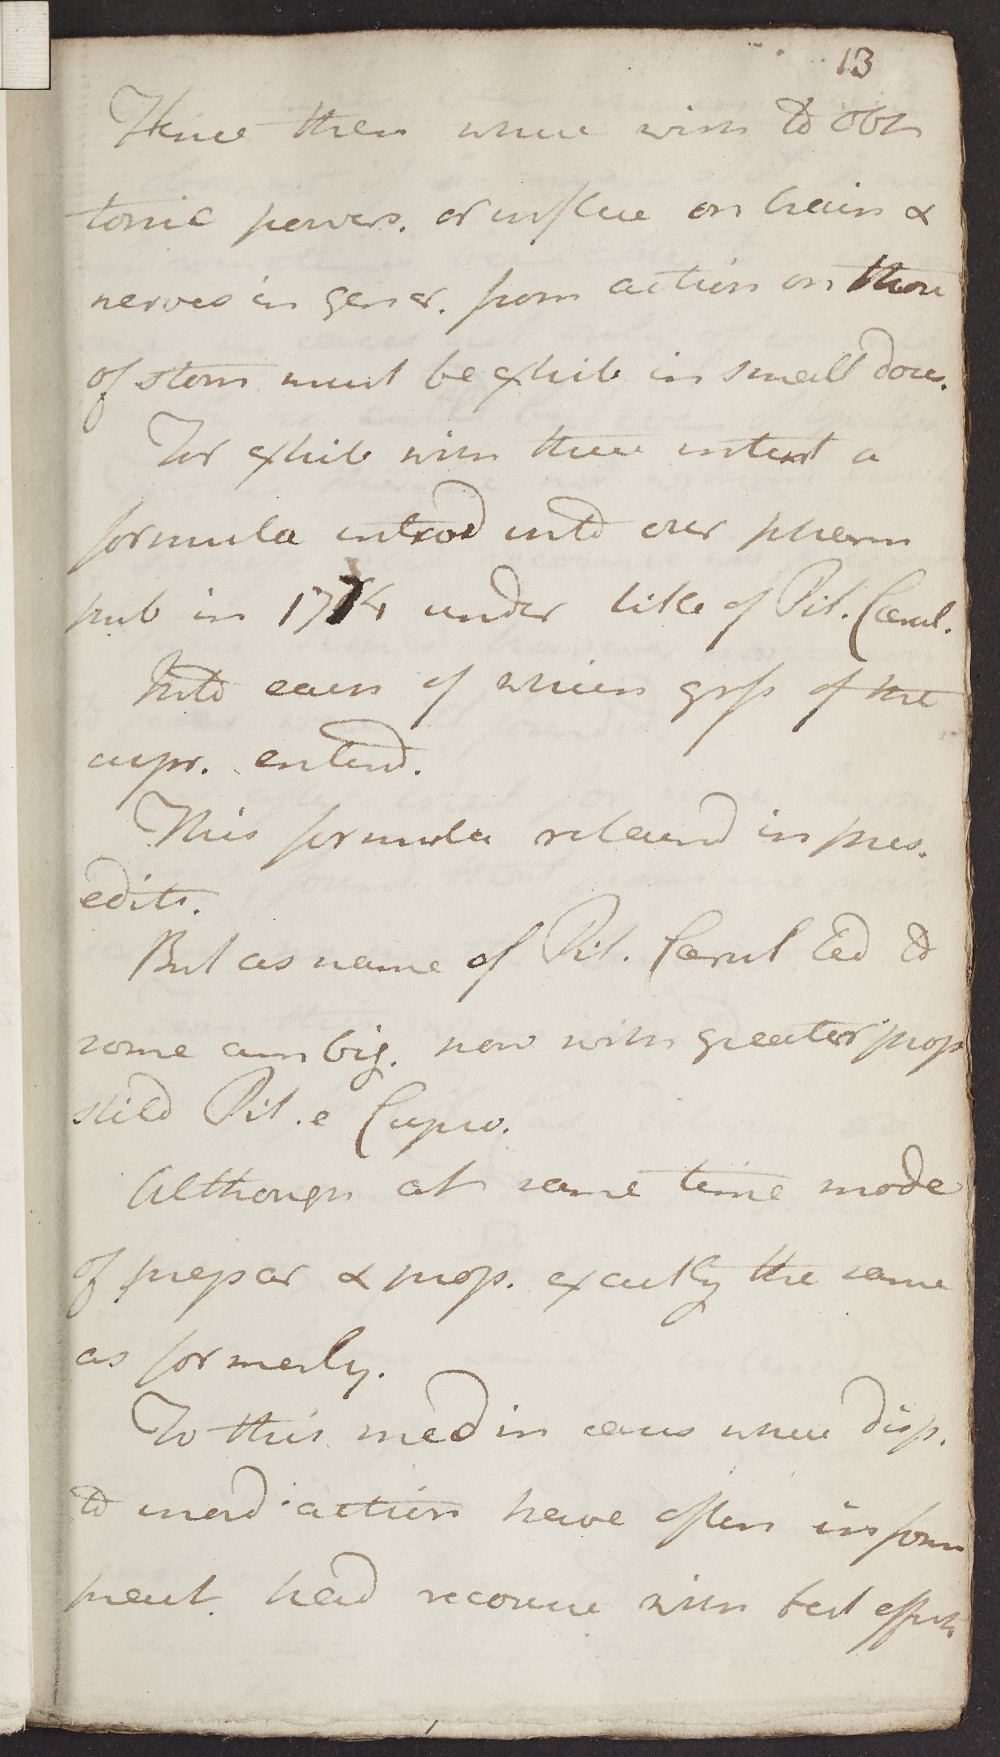 13
Hence then where wish to obt
tonic powers. or influe on brain &
nerves in gener. from action on those
of stom must be exhib in small doses.
For exhib with these intent a
formula introd into our pharm
pub in 1774 under title of Pil. Cærul.
Into each of which grſs of the
cupr. enterd.
This formula retaind in pres.
edit.
But as name of Pil. Cærul led to
some ambig. now with greater prop
stild Pil. e Cupro.
Although at same time mode
of prepar & prop. exactly the same
as formerly.
To this med in cases where disp.
to inord action have often in form
pract. had recourse with best effects